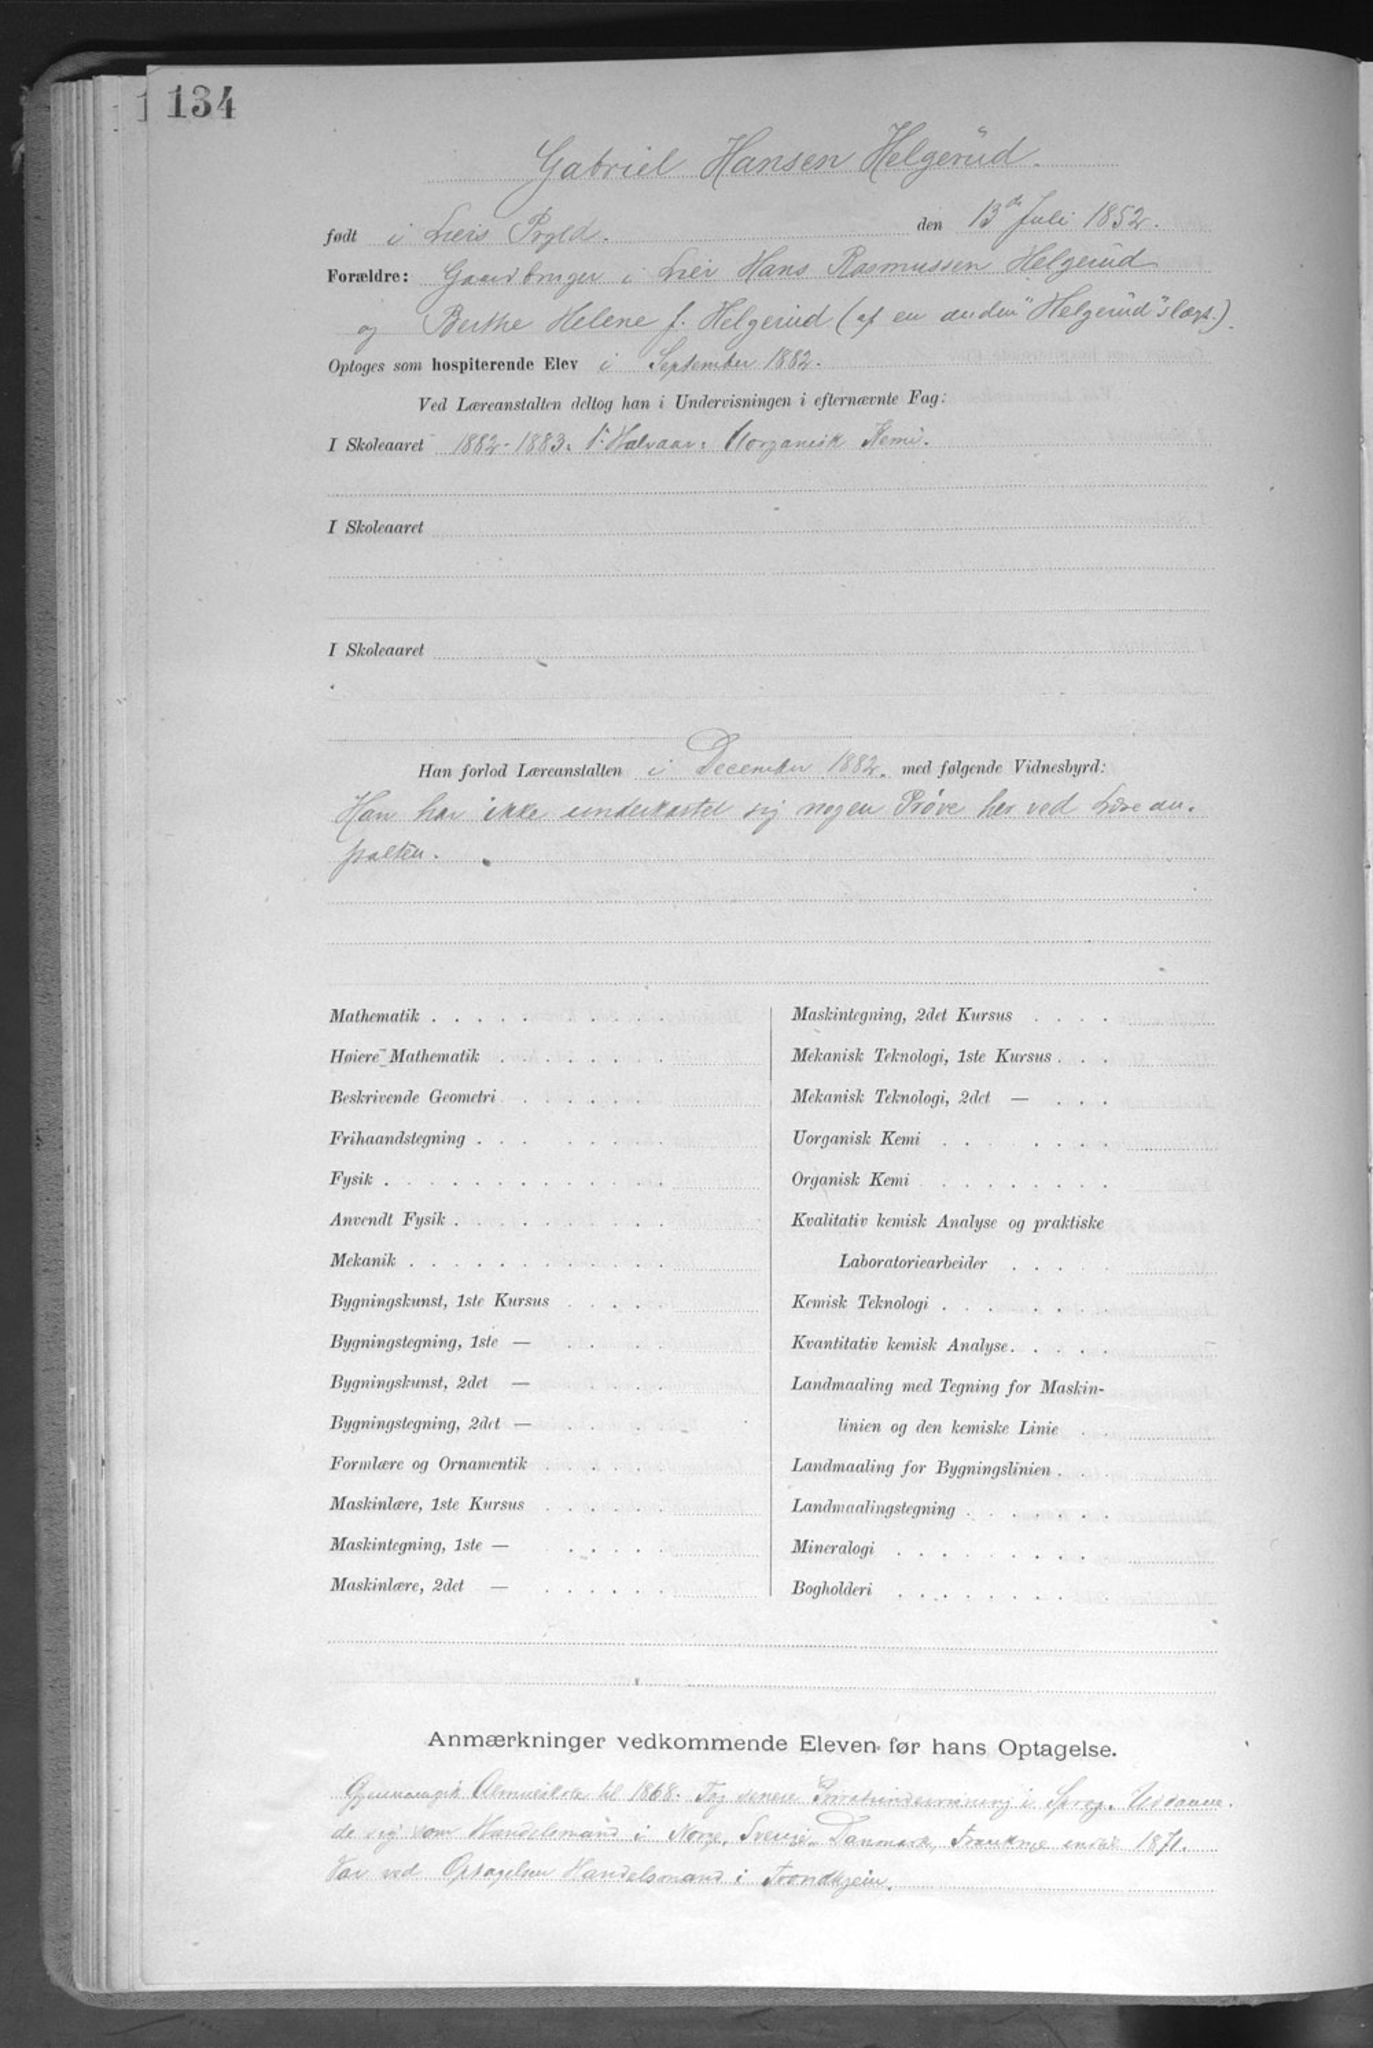 134
Gabriel Hansen Helgerüd.
født i Liers Prgld. den 13de Juli 1852.
Forældre: Gaardbruger i Lier Hans Rasmussen Helgerüd
og Berthe Helene f. Helgerüd (af en anden "Helgerüd"slægt.)
Optoges som hospiterende Elev i September 1882.
Ved Læreanstalten deltog han i Undervisningen i efternævnte Fag:
I Skoleaaret 1882-1883. 1. Halvaar: Uorganisk Kemi.
I Skoleaaret
I Skoleaaret
Han forlod Læreanstalten i December 1882. med følgende Vidnesbyrd:
Han har ikke underkastet sig nogen Prøve her ved Lærean-
stalten.
Mathematik
Høiere Mathematik
Beskrivende Geometri
Frihaandstegning
Fysik
Anvendt Fysik
Mekanik
Bygningskunst, 1ste Kursus
Bygningstegning, 1ste —
Bygningskunst, 2det —
Bygningstegning, 2det —
Formlære og Ornamentik
Maskinlære, 1ste Kursus
Maskintegning, 1ste —
Maskinlære, 2det —
Maskintegning, 2det Kursus
Mekanisk Teknologi, 1ste Kursus
Mekanisk Teknologi, 2det —
Uorganisk Kemi
Organisk Kemi
Kvalitativ kemisk Analyse og praktiske
Laboratoriearbeider
Kemisk Teknologi
Kvantitativ kemisk Analyse
Landmaaling med Tegning for Maskin-
linien og den kemiske Linie
Landmaaling for Bygningslinien
Landmaalingstegning
Mineralogi
Bogholderi
Anmærkninger vedkommende Eleven før hans Optagelse.
Gjennemgik Almueskole til 1868. Tog senere Privatundervisning i Sprog. Uddanne-
de sig som Handelsmand i Norge, Sverige, Danmark, Frankrige indtil 1871.
Var ved Optagelsen Handelsmand i Trondhjem.